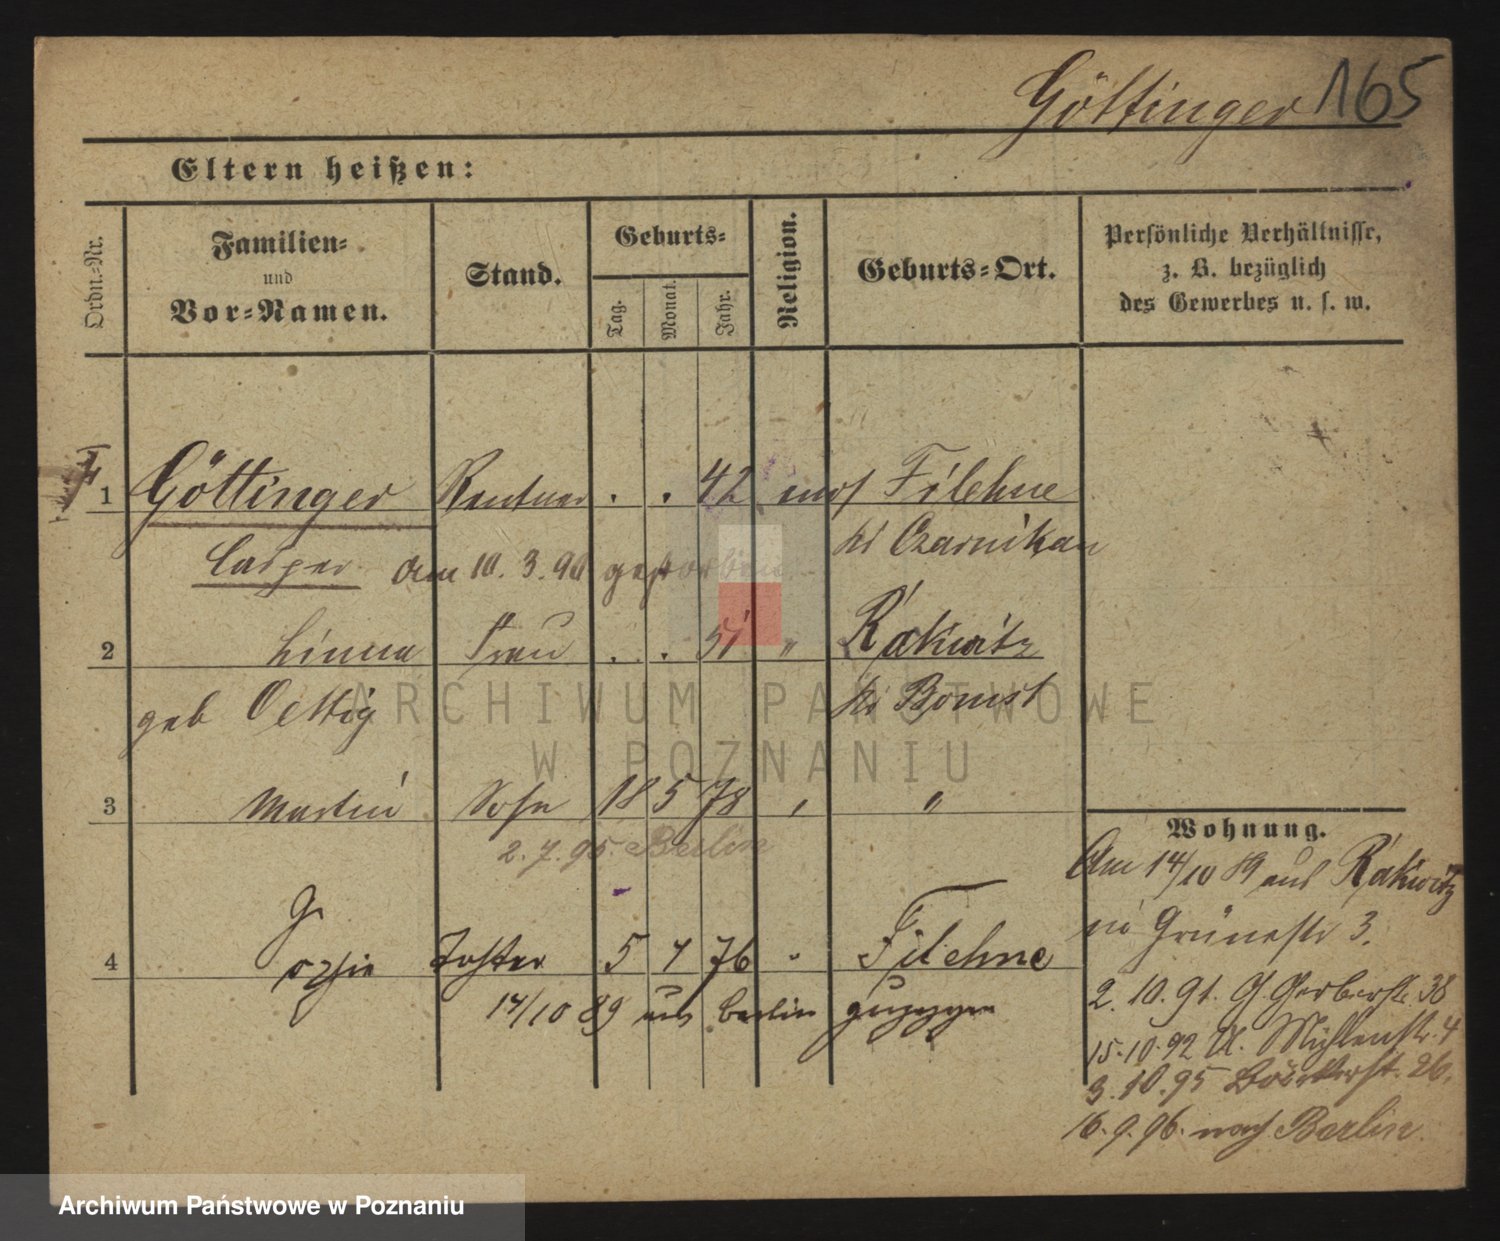 Göttinger 165
Eltern heißen:
Ordn.-Nr.
Familien-
und
Vor-Namen.
Stand.
Geburts-
Tag.
Monat.
Jahr.
Religion.
Geburts-Ort.
Persönliche Verhältnisse,
z. B. bezüglich
des Gewerbes u. s. w.
1 Göttinger Rentner . . 42 mos Filehne
Casper am 10. 3. 90 gestorben. Kr Czarnikau
2 Linna Frau . . 51 " Rakwitz
geb Oettig Kr Bomst
3 Martin Sohn 18 5 78 " "
2. 7. 95. Berlin
4 Tochter 5 7 76 " Filehne
14/10 89 nach Berlin gezogen
Wohnung.
Am 14/10 89 aus Rakwitz
in Grünestr 3.
2. 10. 91. G. Gerberstr. 38
15. 10. 92 U. Mühlenstr. 4
3. 10. 95 Bäckerst. 26.
16. 9. 96. nach Berlin.
ARCHIWUM PAŃSTWOWE
W POZNANIU
Archiwum Państwowe w Poznaniu